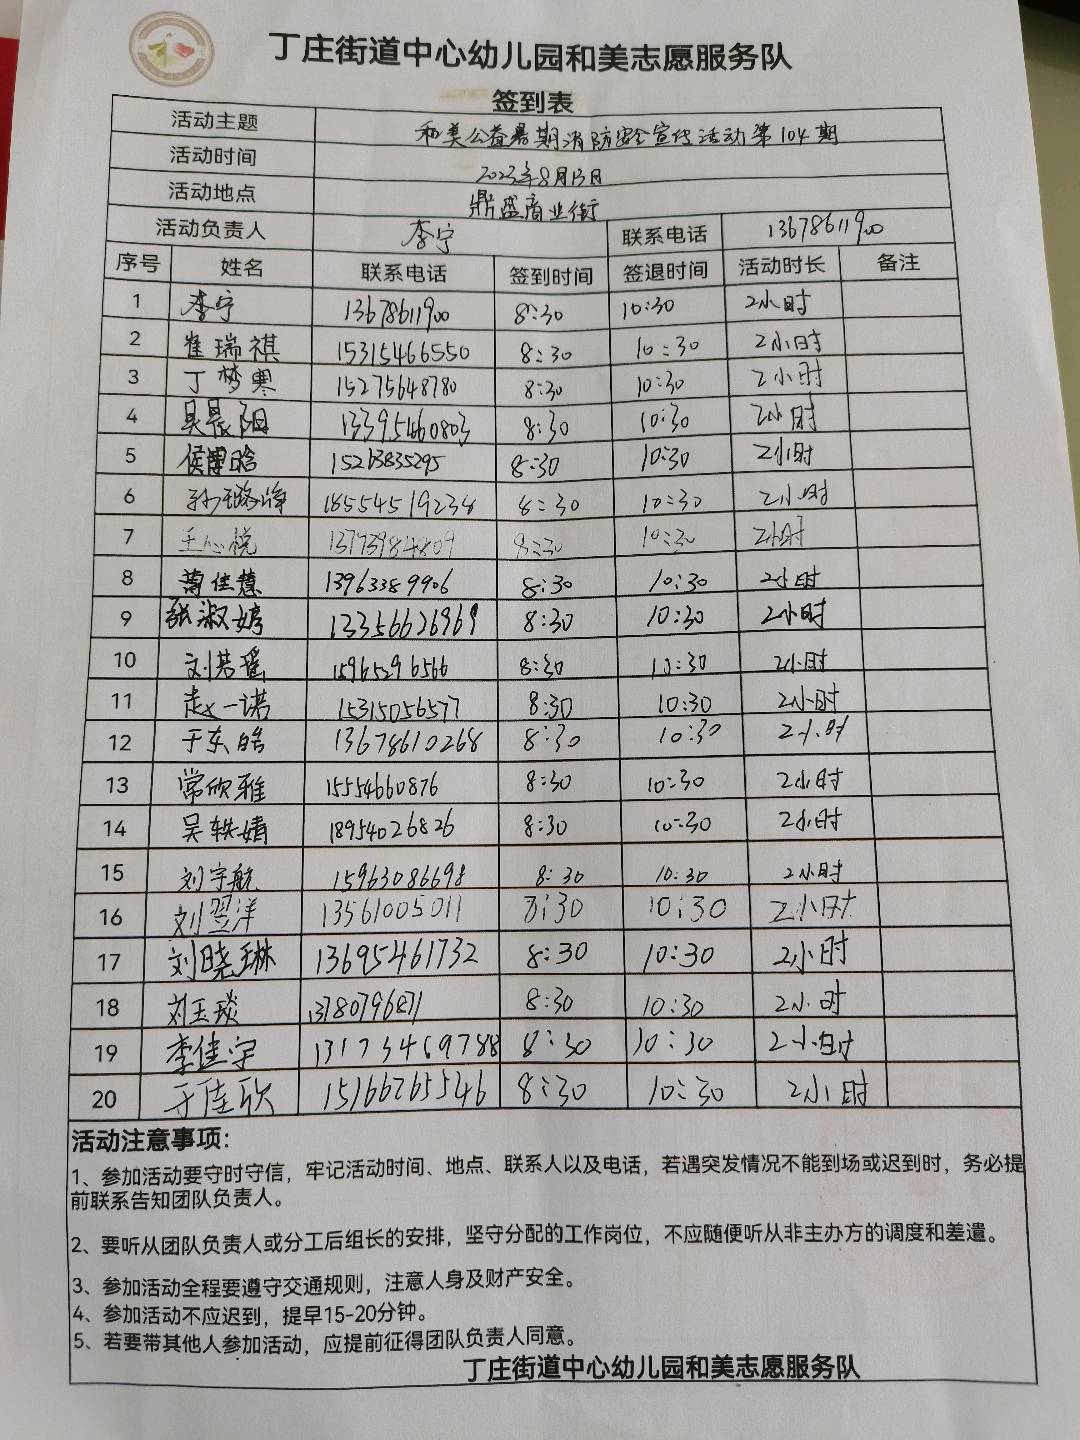 丁庄街道中心幼儿园和美志愿服务队
签到表
活动主题 和美公益暑期消防安全宣传活动第104期
活动时间 2023年8月13日
活动地点 鼎盛商业街
活动负责人 李宁 联系电话 13678611900
序号 姓名 联系电话 签到时间 签退时间 活动时长 备注
1 李宁 13678611900 8:30 10:30 2小时
2 崔瑞祺 15315466550 8:30 10:30 2小时
3 丁梦寒 15275648780 8:30 10:30 2小时
4 吴晨阳 13395460803 8:30 10:30 2小时
5 侯博晗 15263835295 8:30 10:30 2小时
6 孙璐峥 18554519238 8:30 10:30 2小时
7 王心悦 13793984809 8:30 10:30 2小时
8 佳慧 13963389906 8:30 10:30 2小时
9 张淑婷 13356626969 8:30 10:30 2小时
10 刘若瑶 15965296566 8:30 10:30 2小时
11 赵一诺 15315056577 8:30 10:30 2小时
12 于东皓 13678610268 8:30 10:30 2小时
13 常欣雅 15554660876 8:30 10:30 2小时
14 吴轶婧 18954026826 8:30 10:30 2小时
15 刘宇航 15963086698 8:30 10:30 2小时
16 刘翌洋 13561005011 8:30 10:30 2小时
17 刘晓琳 13695461732 8:30 10:30 2小时
18 刘玉琰 13780796871 8:30 10:30 2小时
19 李佳宇 13173469788 8:30 10:30 2小时
20 于佳欣 15166265546 8:30 10:30 2小时
活动注意事项：
1、参加活动要守时守信，牢记活动时间、地点、联系人以及电话，若遇突发情况不能到场或迟到时，务必提
前联系告知团队负责人。
2、要听从团队负责人或分工后组长的安排，坚守分配的工作岗位，不应随便听从非主办方的调度和差遣。
3、参加活动全程要遵守交通规则，注意人身及财产安全。
4、参加活动不应迟到，提早15-20分钟。
5、若要带其他人参加活动，应提前征得团队负责人同意。
丁庄街道中心幼儿园和美志愿服务队